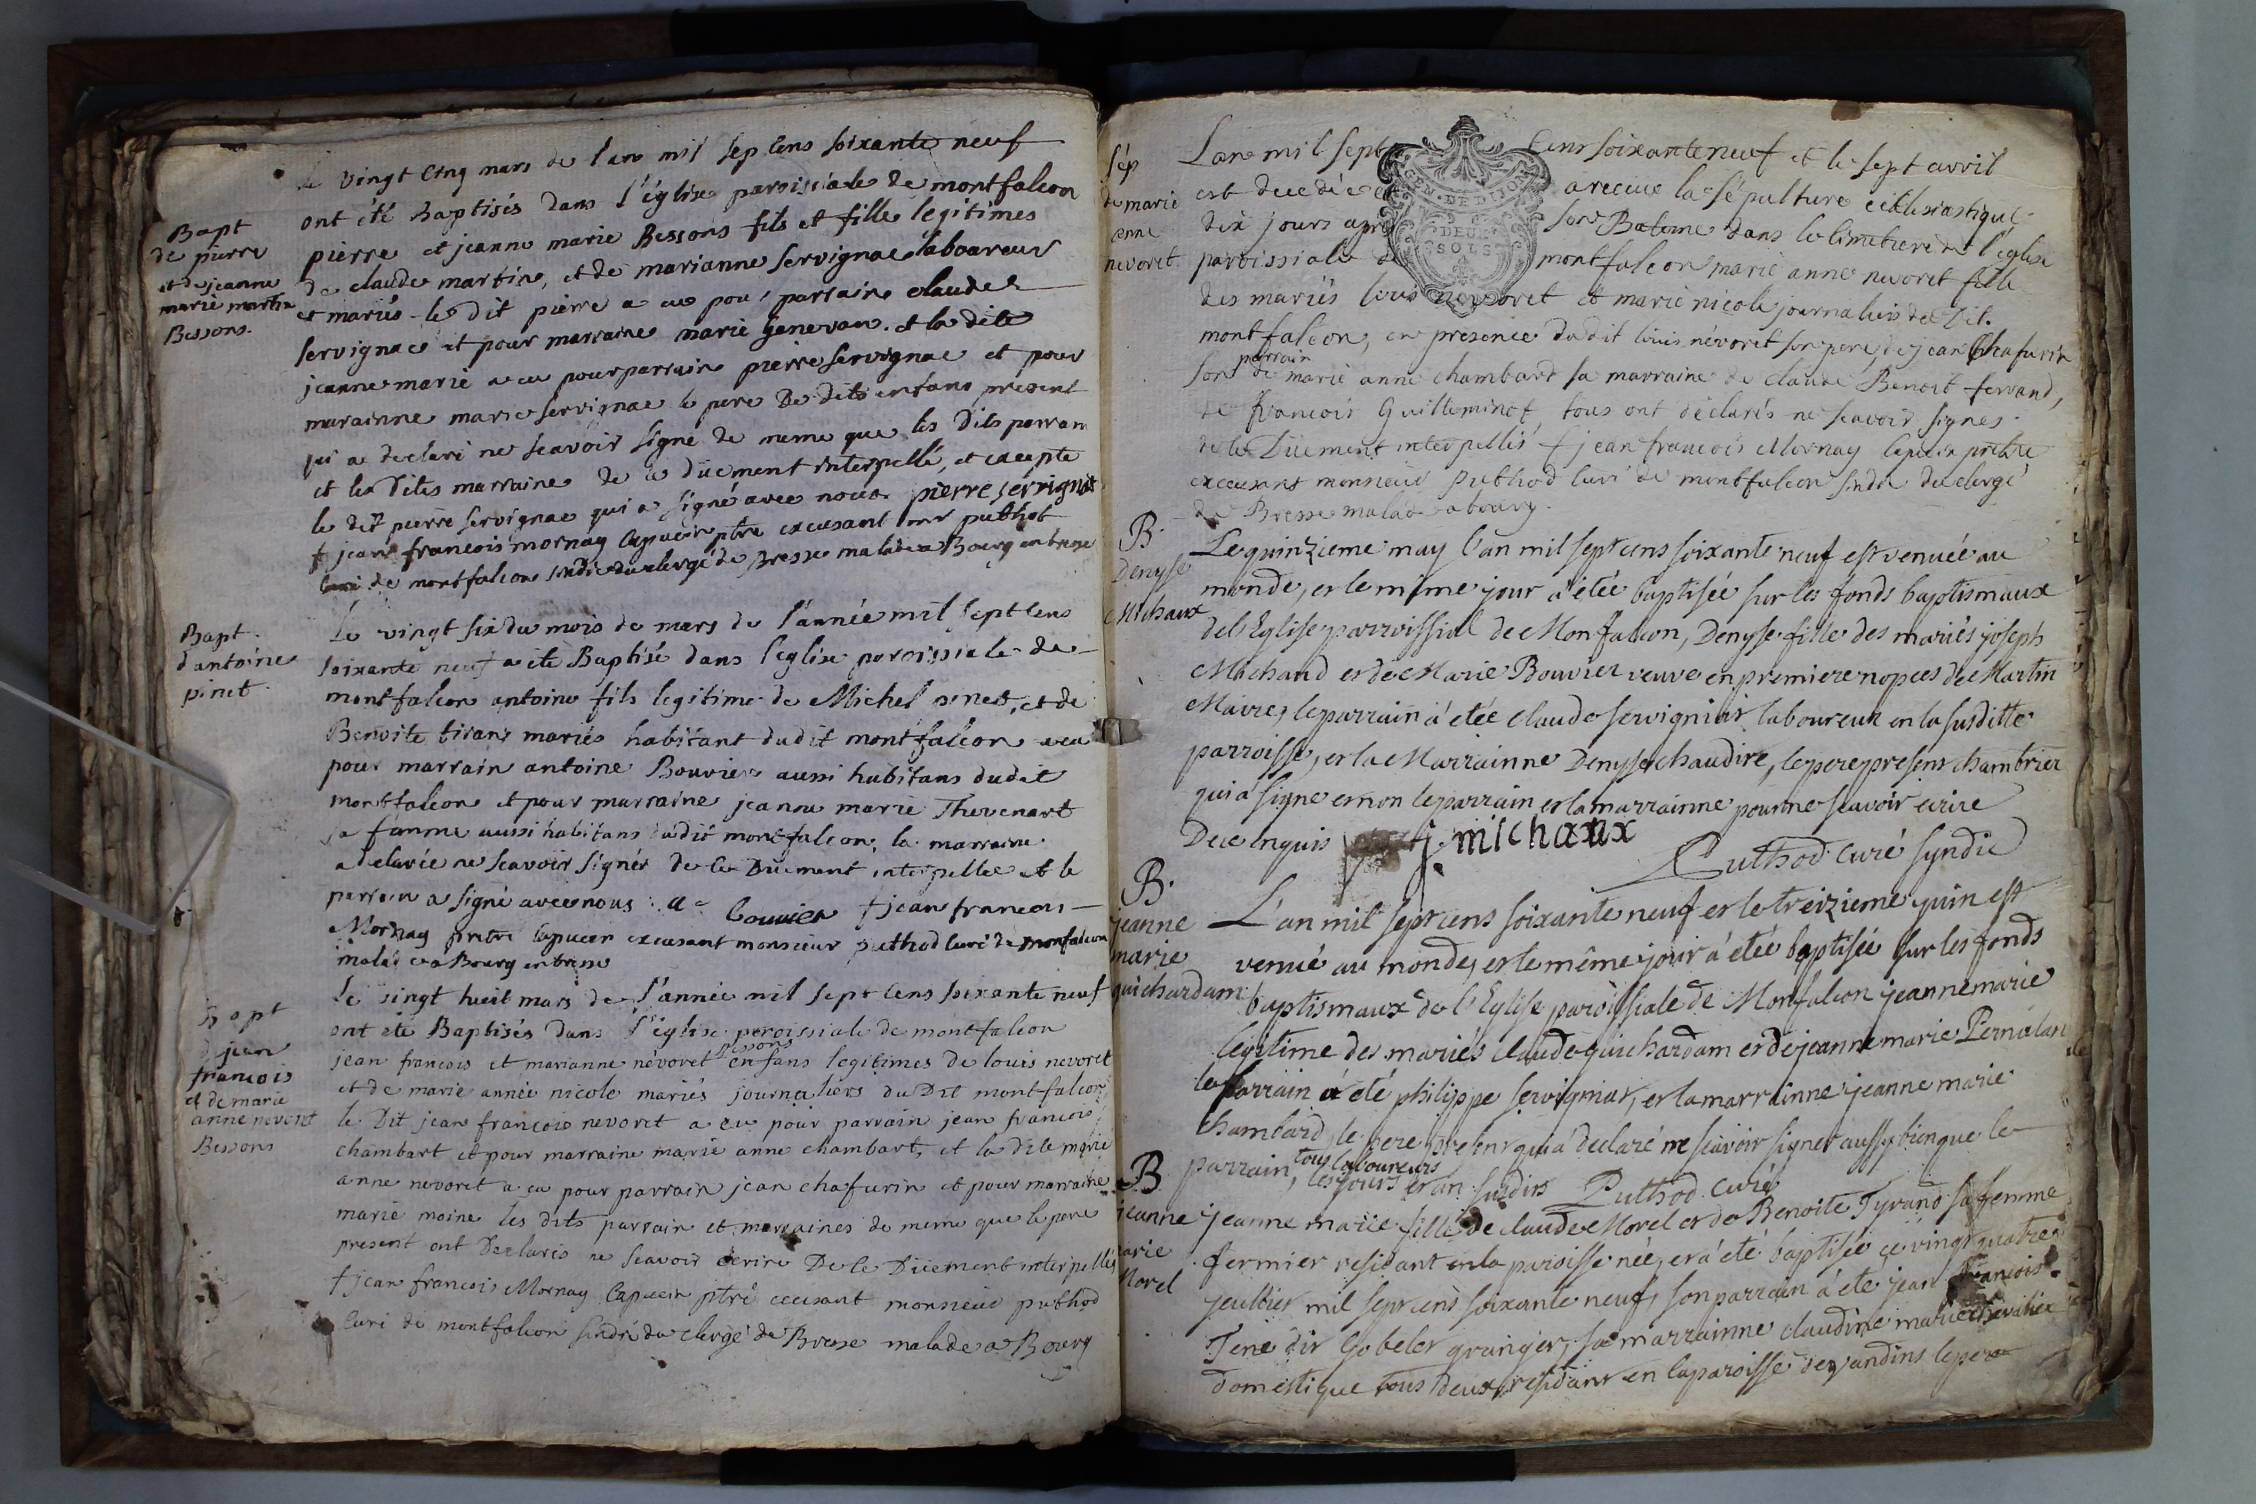 Le vingt cinq mars de l'an mil sept cens soixante neuf
ont été Baptisés dans l'église paroissiale de montfalcon
pierre et jeanne marie Bessons fils et fille legitimes
de claude martin, et de marianne servignac laboureur
et mariés le Dit pierre a eu pour parrain claude
servignac et pour marraine marie genevan. et la dite
jeanne marie a eu pour parrain pierre servignac et pour
marainne marie servignac le pere De dits enfans présent
qui a declaré ne scavoir signé de meme que les Dits parrain
et les Dites marraine de ce dûement interpellé, et excepte
le dit pierre servignac qui a signé avec nous. pierre servignat
f jean francois mornay Capucin ptre excusant mr puthod
Curé de montfalcon sindic du clergé de Bresse malade a Bourg en bresse
Bapt
de pierre
et de jeanne
marie martin
Bessons.
Le vingt six du mois de mars de l'année mil sept cens
soixante neuf a été Baptisé dans l'eglise paroissiale de
montfalcon antoine fils legitime de Michel pinet, et de
Benoite tirant mariés habitant dudit montfalcon a eu
pour marrain antoine Bouvier aussi habitans dudit
montfalcon et pour marraine jeanne marie Thevenart
sa famme aussi habitans dudit montfalcon, la marraine
a declarée ne scavoir signér de ce Dûement interpellée et le
parrain a signé avec nous. a bouvier f jean francois
Mornay pretre capucin excusant monsieur puthod curé de monfalcon
malade a Bourg en bresse
Bapt.
d'antoine
pinet.
Le vingt hueit mars de l'année mil sept cens soixante neuf
ont été Baptisés dans l'église paroissiale de montfalcon
jean francois et marianne névoret Bessons enfans legitimes de louis nevoret
et de marie année nicole mariés journaliers du Dit montfalcon
le Dit jean francois nevoret a eu pour parrain jean francois
chambart et pour marraine marie anne chambart, et la dite marie
anne nevoret a eu pour parrain jean chafurin et pour marraine
marie moine les dits parrain et marraines de meme que le pere
present ont Declarés ne scavoir ecrire De ce Dûement interpellés
f jean francois Mornay Capucin ptre excusant monsieur puthod
Curé de montfalcon sindic du clergé de Bresse malade a Bourg
Bapt
d jean
francois
et de marie
anne nevoret
Bessons
L'an mil sept cens soixante neuf et le sept avril
est decedée et a recüe la sépulture ecclesiastique
dix jours apres son Bateme dans le cimetiere de l'église
paroissiale de montfalcon marie anne nevoret fille
des mariés louis nevoret et marie nicole journaliers de Dit
montfalcon, en presence dudit louis névoret son pere, de jean Chafurin
son parrain de marie anne chambard sa marraine de claude Benoit ferrand,
de francois Guilleminot, tous ont déclarés ne scavoir signer
de ce Dûement interpellés f jean francois Mornay Capucin prêtre
excusant monsieur Puthod Curé de montfalcon sindic du clergé
de Bresse malade a bourg.
Sép
de marie
anne
nevoret
GEN. DE DIJON
DEUX
SOLS
Le quinzieme may l'an mil sept cens soixante neuf est venuée au
monde, et le même jour a étée baptisée sur les fonds baptismaux
de l'Eglise parroissial de Monfalcon, Denyse fille des mariés joseph
Michaud et de Marie Bouvier veuve en premiere nopces de Martin
Maire, le parrain à étée claude servigniat laboureur en la susditte
parroisse, et la Marrainne Denyse chaudire, le pere present chambrier
qui à signé et non le parrain et la marrainne pour ne scavoir ecrire
De ce enquis J. michaux
Puthod curé syndic
B.
Denyse
Michaux
L'an mil sept cens soixante neuf et le treizieme juin est
venué au monde, et le même jour à étée baptisée sur les fonds
baptismaux de l'Eglise paroissiale de Monfalcon jeanne marie
legitime des mariés claude guichardam et de jeanne marie Pernalan
le parrain à été philippe servigniat, et la marrainne jeanne marie
Chambard, le pere present qui a declaré ne scavoir signer aussy bien que le
parrain, tous laboureurs les jours et an susdits Puthod curé
B.
jeanne
marie
guichardam
jeanne marie fille de claude Morel et de Benoite Tyrand sa femme
fermier residant en la paroisse née, et a été baptisée ce vingt quatre
jeuillier mil sept cens soixante neuf, son parrain à été jean françois
Tene dit Gobelet granger, sa marrainne claudine marie chevalier
domestique tous deux residant en la paroisse de jandins le pere
B
jeanne
marie
Morel